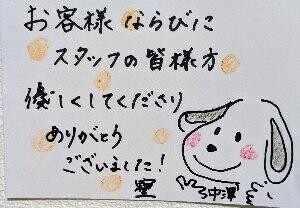 お客様ならびに
スタッフの皆様方
優しくしてくださり
ありがとう
ございました!
中澤